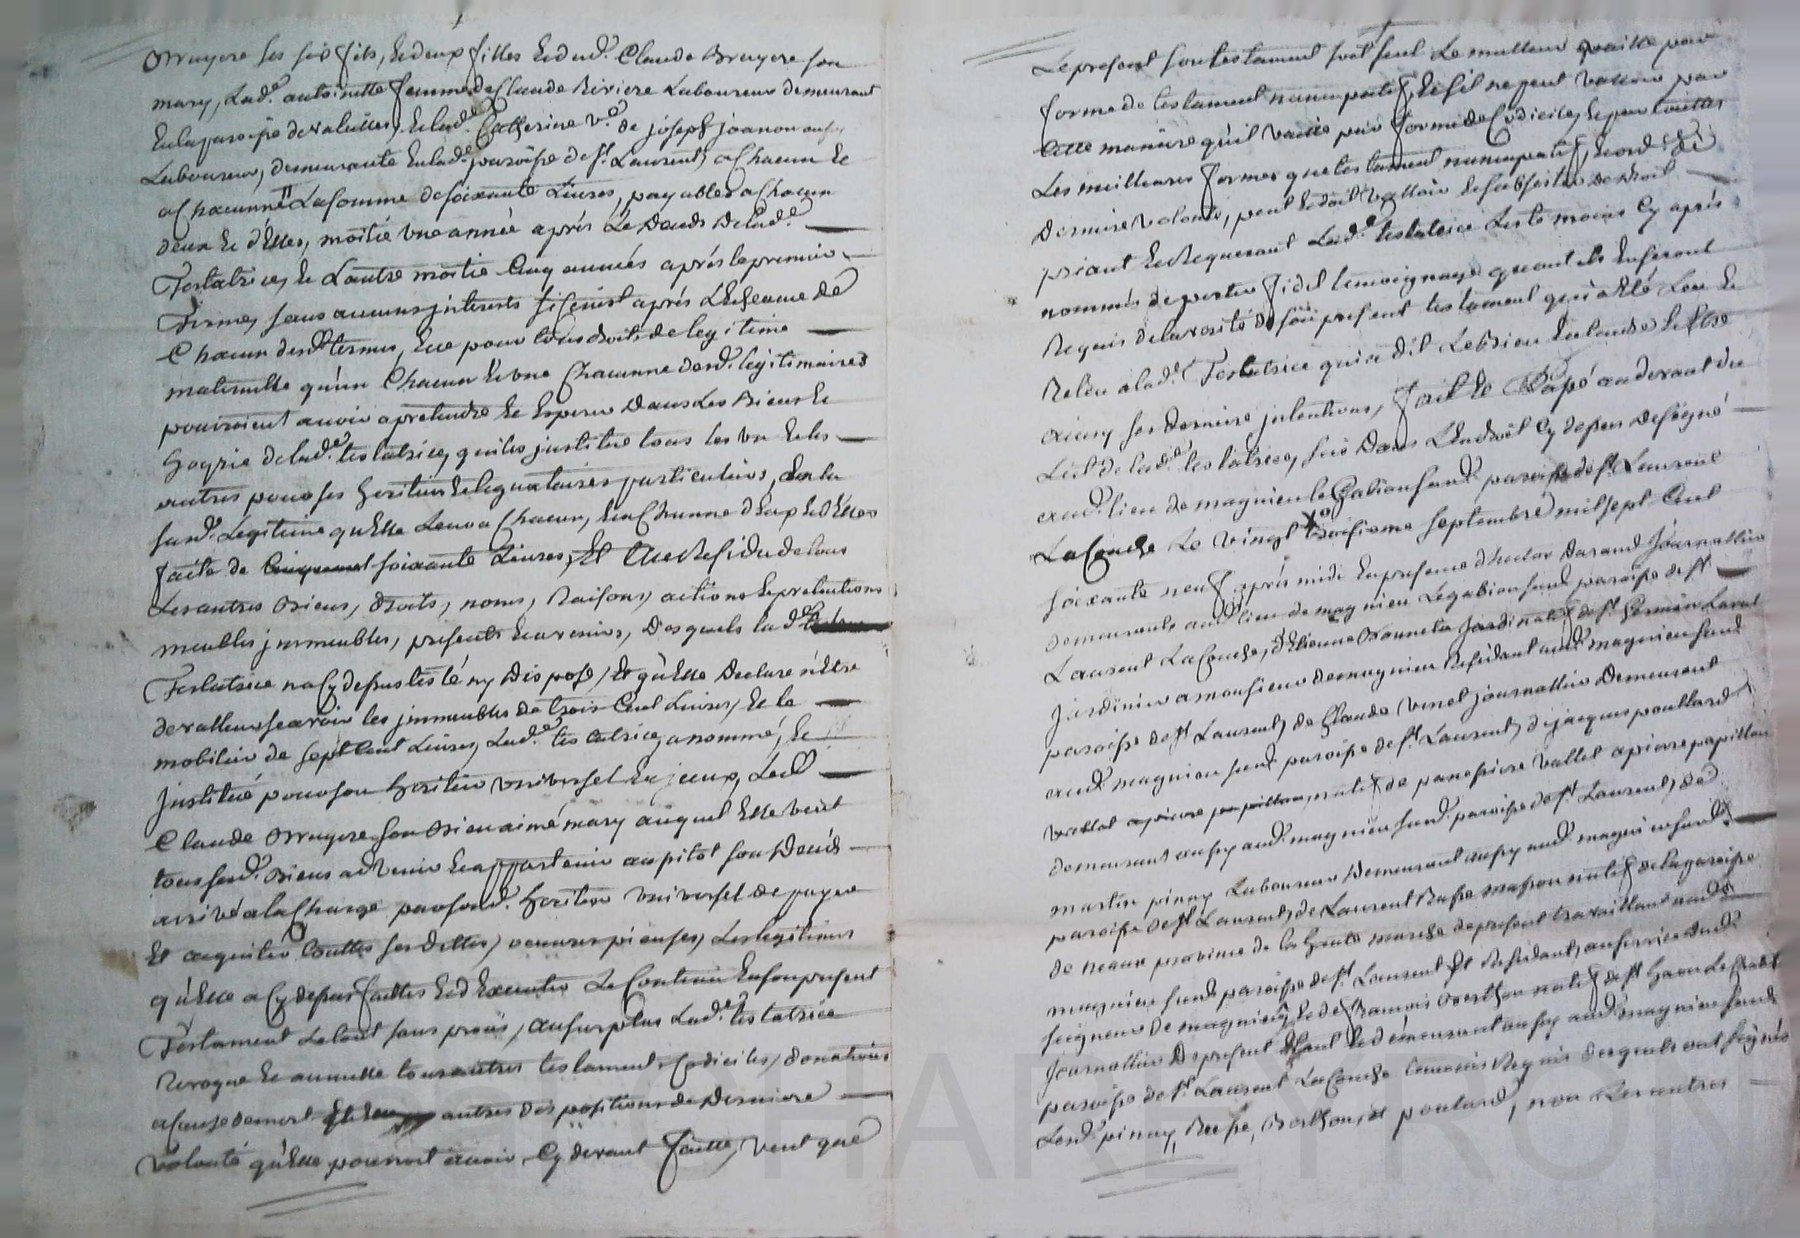 Bruyere ses six fils, Et deux filles Et dud. Claude Bruyere son
mary, Lade. antoinette femme de Claude Riviere Laboureur demeurant
En la paroisse de valeilles, Et lade. Catherine ve. de joseph joanon aussy
Laboureur, demeurante En lade. paroisse de st. Laurent, a Chacun Et
a Chacunne La somme de soixante Livres, payables a Chacun
deux Et d'Elles, moitié une année après Le Deceds De lade.
Testatrice, Et Lautre moitié Cinq années après le premier
Terme, sans aucuns interests si ce n'est après L'Echeance de
Chacun desd. termes, Et ce pour tous droits de legitime
maternelle qu'un Chacun Et une Chacunne desd. legitimaires
pourroient avoir a pretendre Et Esperer Dans Les Biens Et
hoyrie de lade. testatrice, qui les institue tous les uns Et les
autres pour ses heritiers Et legataires particuliers, En la
susd. Legitime qu'Elle Leur a Chacun, Et a Chacunne d'Eux Et d'Elles
faite de soixante Livres, Et Au Residu de tous
Les autres Biens, droits, noms, Raisons, actions Et pretentions
meubles immeubles, presents Et avenirs, Desquels lade.
Testatrice na Cy depus testé ny Disposé, Et qu'Elle Declare n'Etre
de valleur scavoir les immeubles de trois Cent Livres, Et le
mobilier de sept Cent Livres, Lade. testatrice, a nommé, Et
Institué pour son heritier universel Et jceux, Led.
Claude Bruyere son Bien aimé mary auquel Elle veut
tous sesd. Biens advenir Et appartenir aussitot son Deceds
arrivé a la Charge par sond. heritier universel de payer
Et acquiter touttes ses dettes, oeuvres pieuses, Les legitimes
qu'Elle a Cy depus faittes Et d'Executer Le Contenu En son present
Testament Le tout sans procès, au surplus Lade. testatrice
Revoque Et annulle tous autres testaments, Codiciles, donations
a Cause de mort autres dispositions de Derniere
volonté qu'Elle pourroit avoir Cy devant faitte, veut que
Le present son testament soit seul Le meilleur vaille par
forme de testament nuncupatif, Et s'il ne peut valloir par
Cette maniere qu'il vaille par forme de Codicile, Et par touttes
Les meilleures formes que testament nuncupatif, Et ord. de
Derniere volonté, peut Et doit valloir Et subsister de droit
priant Et Requerant Lade. testatrice Les te moins Cy après
nommés de porter fidel temoignage quant ils En seront
Requis de la verité de son present testament qui a Eté Leu Et
Releu a lade. Testatrice qui a dit Le bien Entendre Et Etre
ainsy ses Derniere intentions, fait Et Passé au devant du
Lict de lade. testatrice, sis Dans L'Endroit Cy depus designé
aud. lieu de magnieu le Gabion susd. paroisse de st. Laurent
La Conche Le vingt troisieme septembre mil sept Cent
soixante neuf, après midi En presence d'hector Durand Journallier
demeurant aud. lieu de magnieu Le gabion susd. paroisse de st.
Laurent La Conche, d'Etienne Bonneta natif de st. Germain Laval
Jardinier a monsieur de magnieu Residant aud. magnieu susd.
paroisse de st. Laurent, de Claude vinet journallier Demeurant
aud. magnieu susd. paroisse de st. Laurent, de jacques poullard
vallet a pierre papillon, natif de panessiere vallet a pierre papillon
demeurant aussy aud. magnieu susd. paroisse de st. Laurent, de
martin pinay Laboureur Demeurant aussy aud. magnieu susd.
paroisse de st. Laurent, de Laurent Busse masson natif de la paroisse
de neaux province de la haute marche de present travaillant aud.
magnieu susd. paroisse de st. Laurent Et Residant, au service dud.
seigneur de magnieu, Et de francois Berthon natif de st. haon Le Chatel
Journallier De present Et demeurant aussy aud. magnieu susd.
paroisse de st. Laurent La Conche temoins Requis desquels ont signés
Lesd. pinay, Busse, Berthon, Et poulard, non Les autres
CHAREYRON